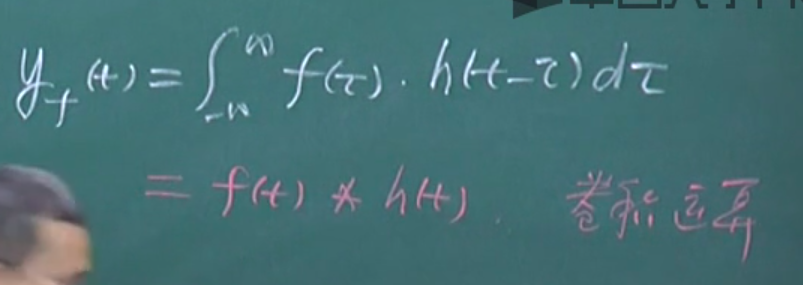 y_f(t) = ∫_{-∞}^{∞} f(τ) · h(t-τ) dτ
= f(t) * h(t). 卷积运算